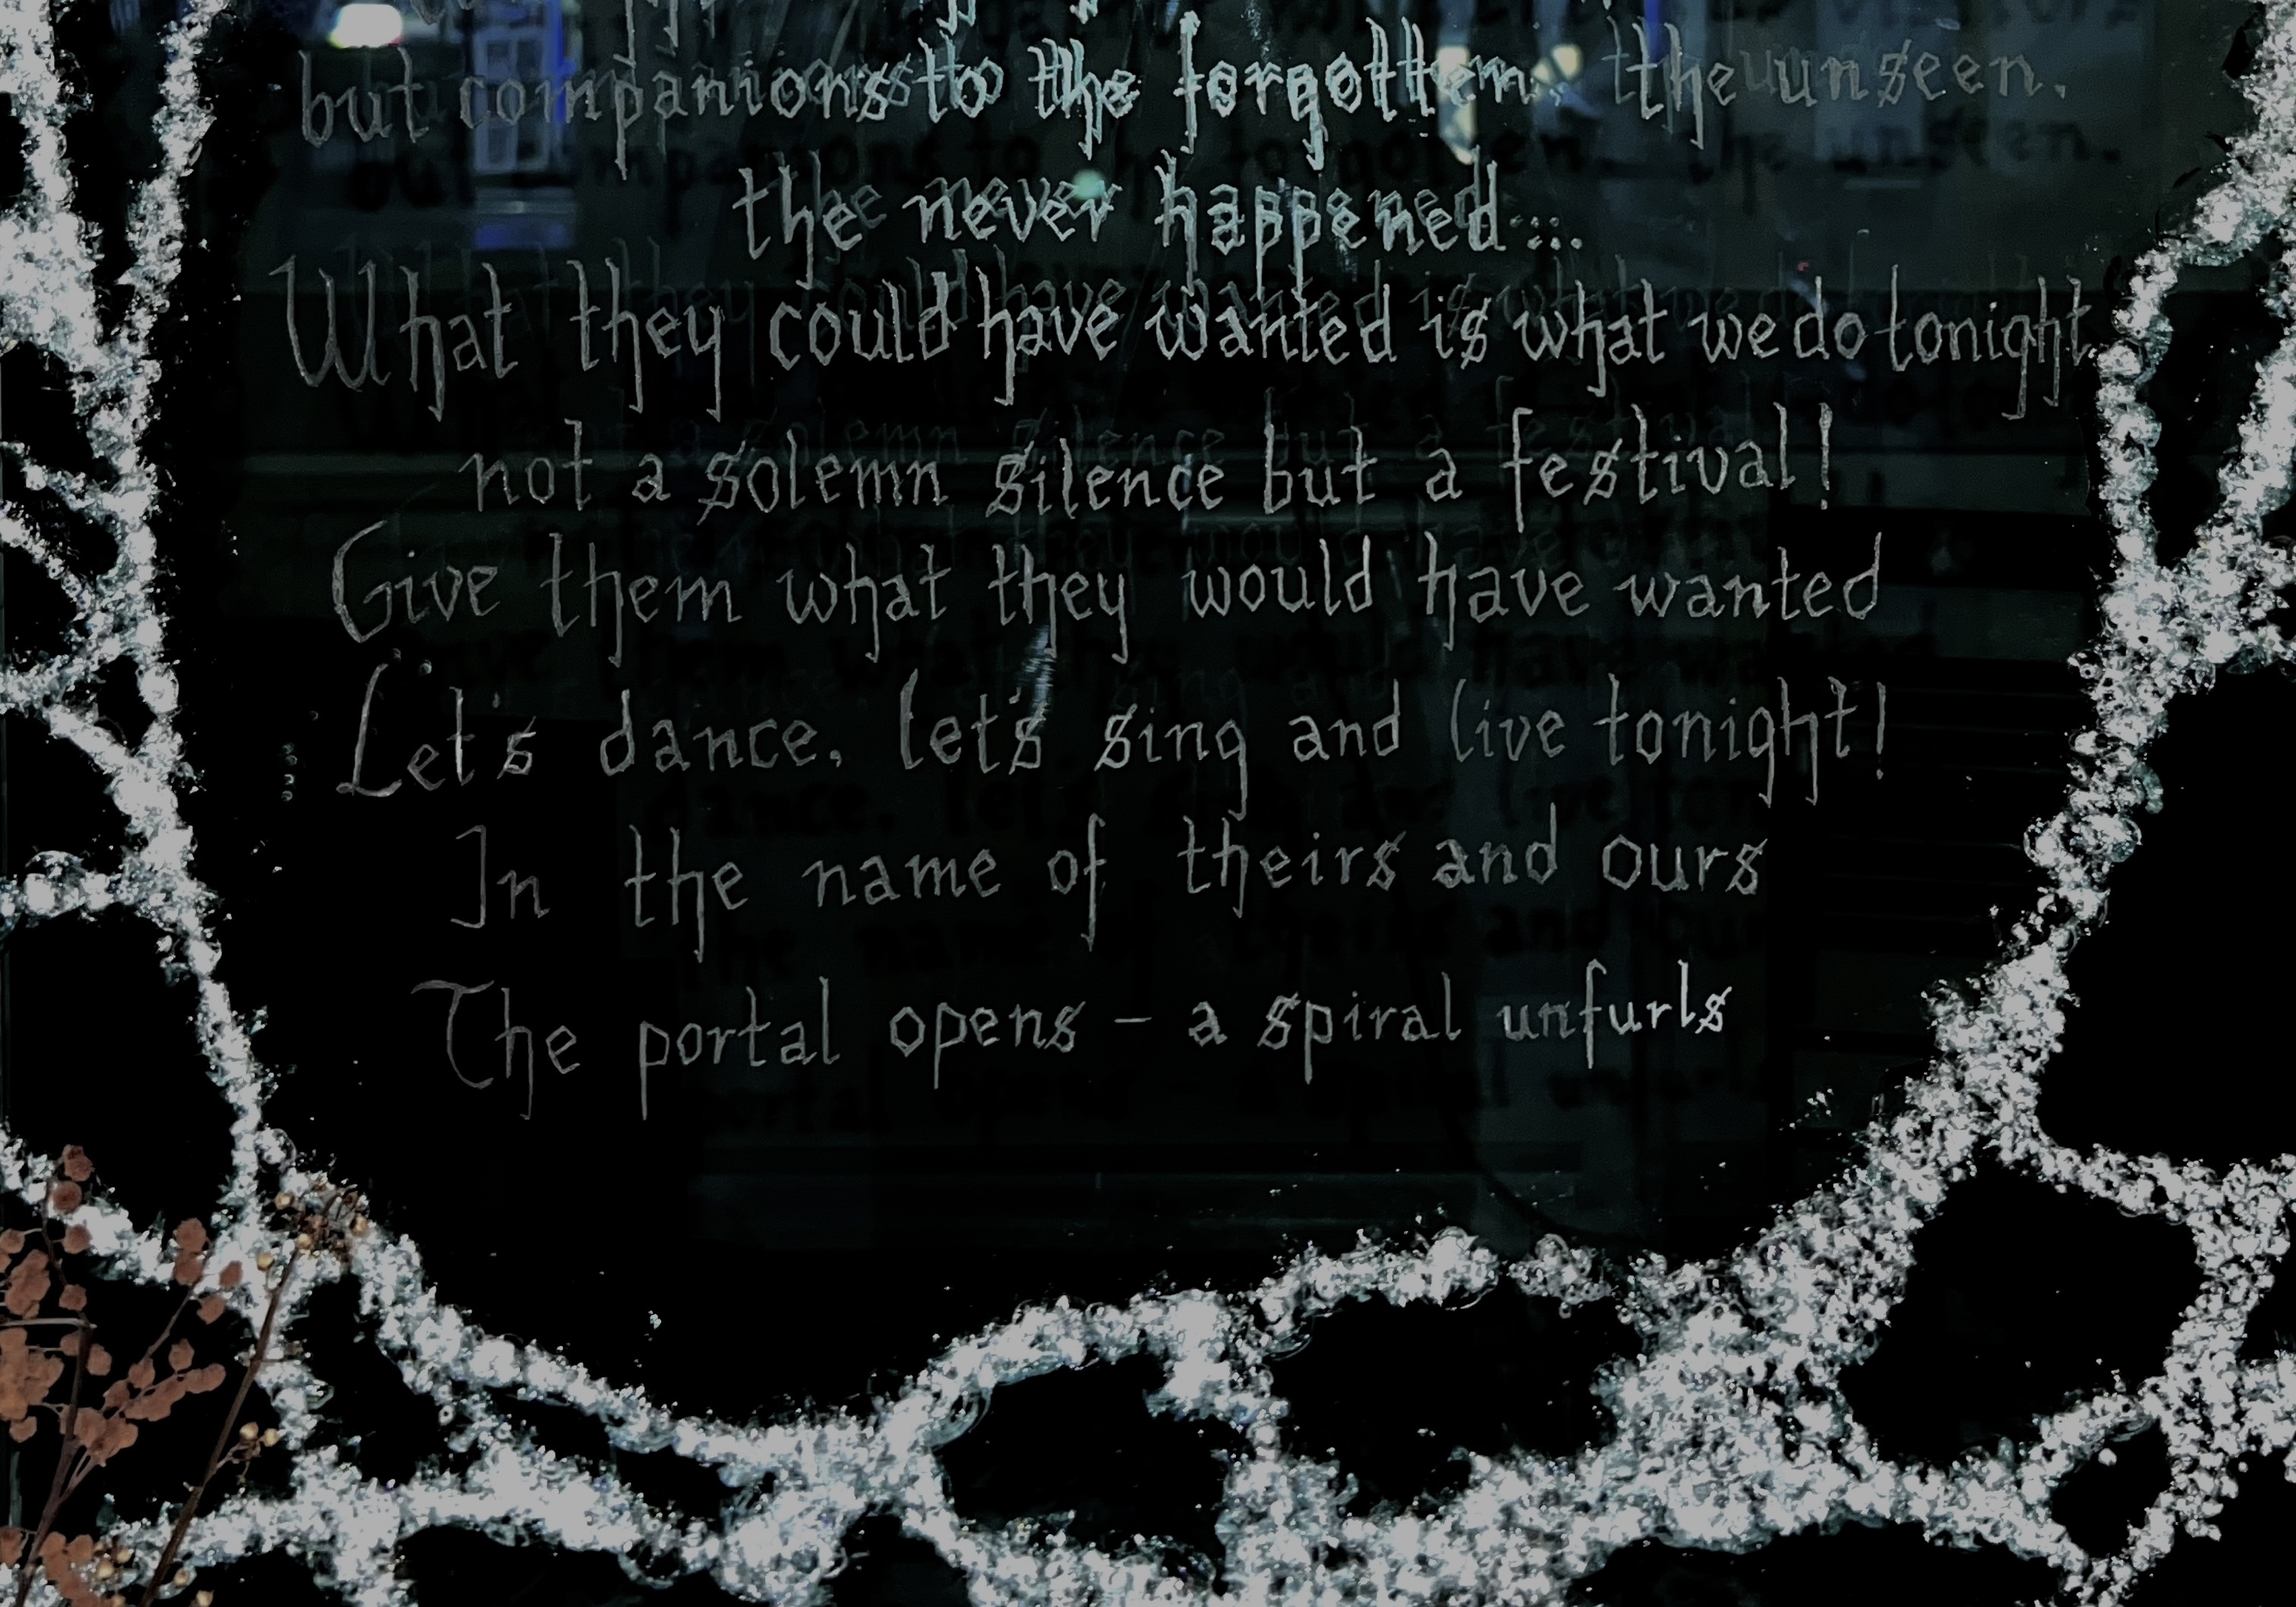 but companions to the forgotten. the unseen.
the never happened...
What they could have wanted is what we do tonight
not a solemn silence but a festival!
Give them what they would have wanted
Let's dance, let's sing and live tonight!
In the name of theirs and ours
The portal opens – a spiral unfurls